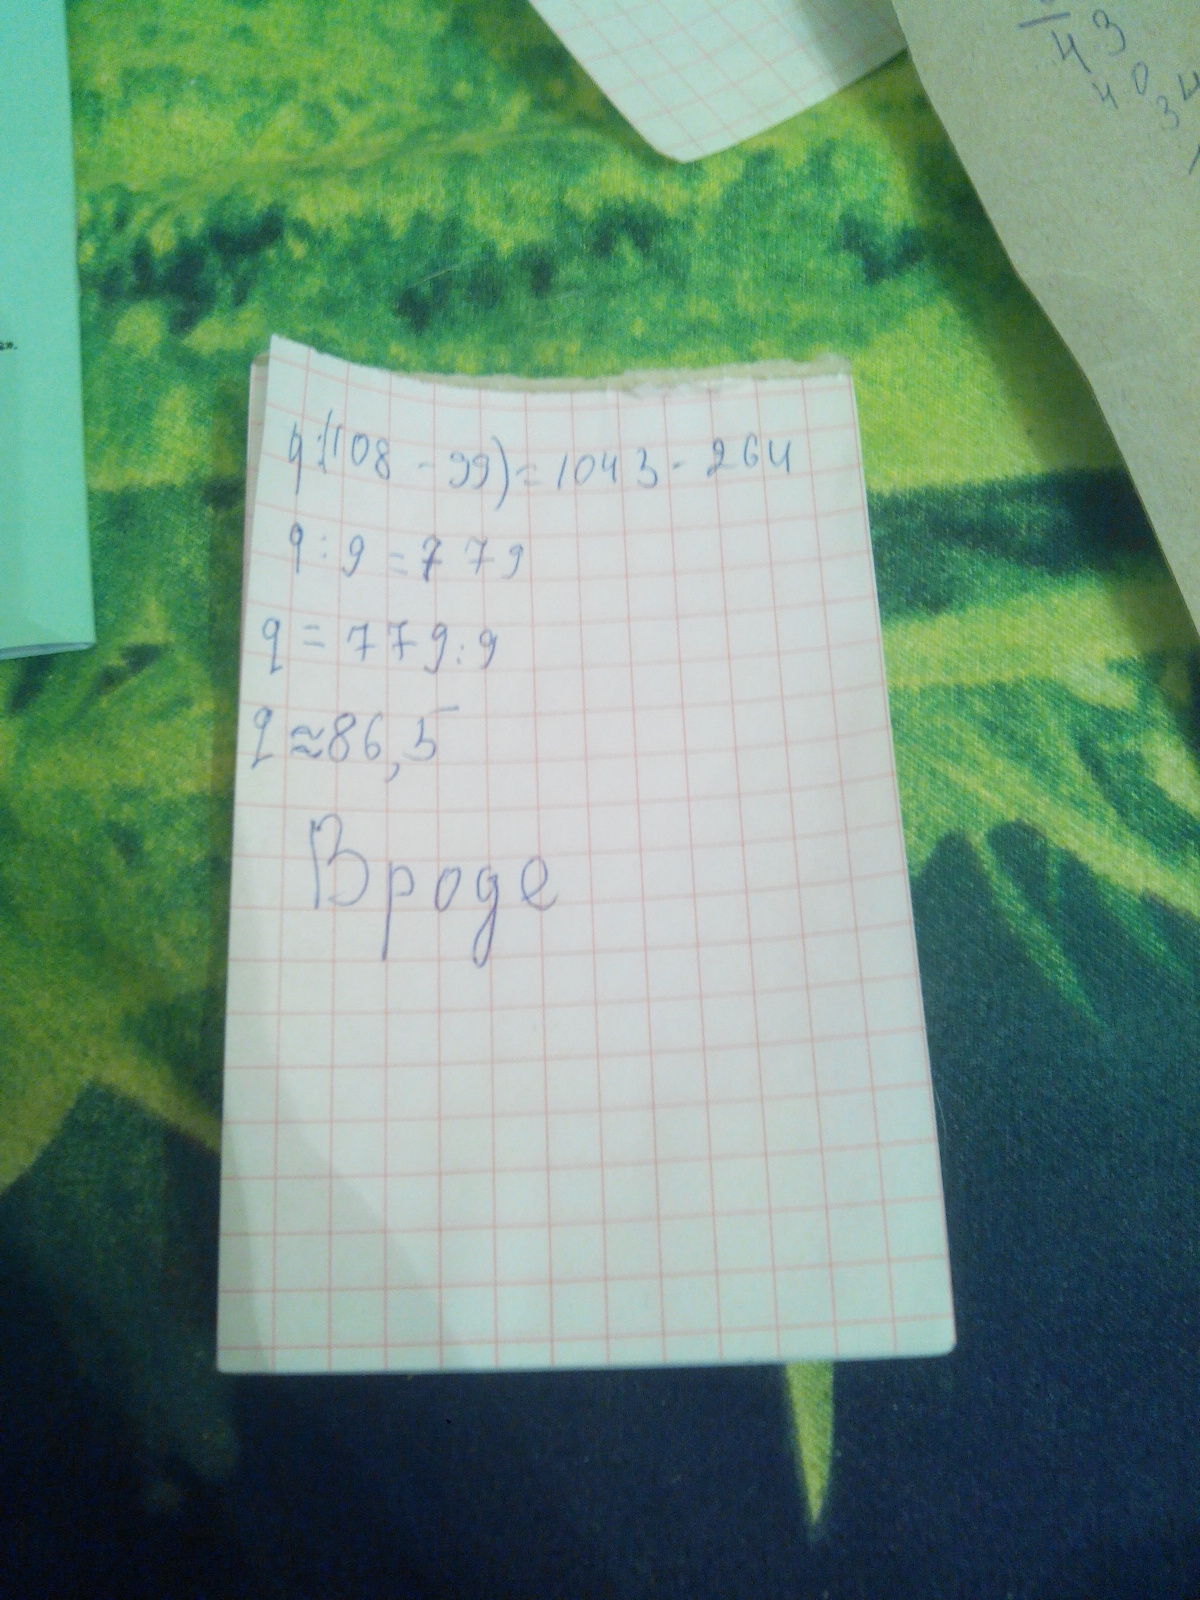 q:(108-99)=1043-264
q:9=779
q=779:9
q≈86,5
Вроде
43
40
34